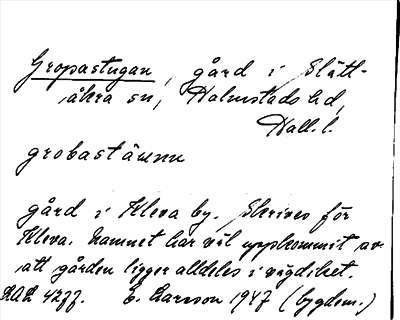 Gropastugan, gård i Slätt-
åkra sn, Halmstads hd,
Hall. l.
grobastäwnn
gård i Kleva by. Skrives för
Kleva. Namnet har väl uppkommit av
att gården ligger alldeles i vägdiket.
E. Larsson 1947 (bygdem.)